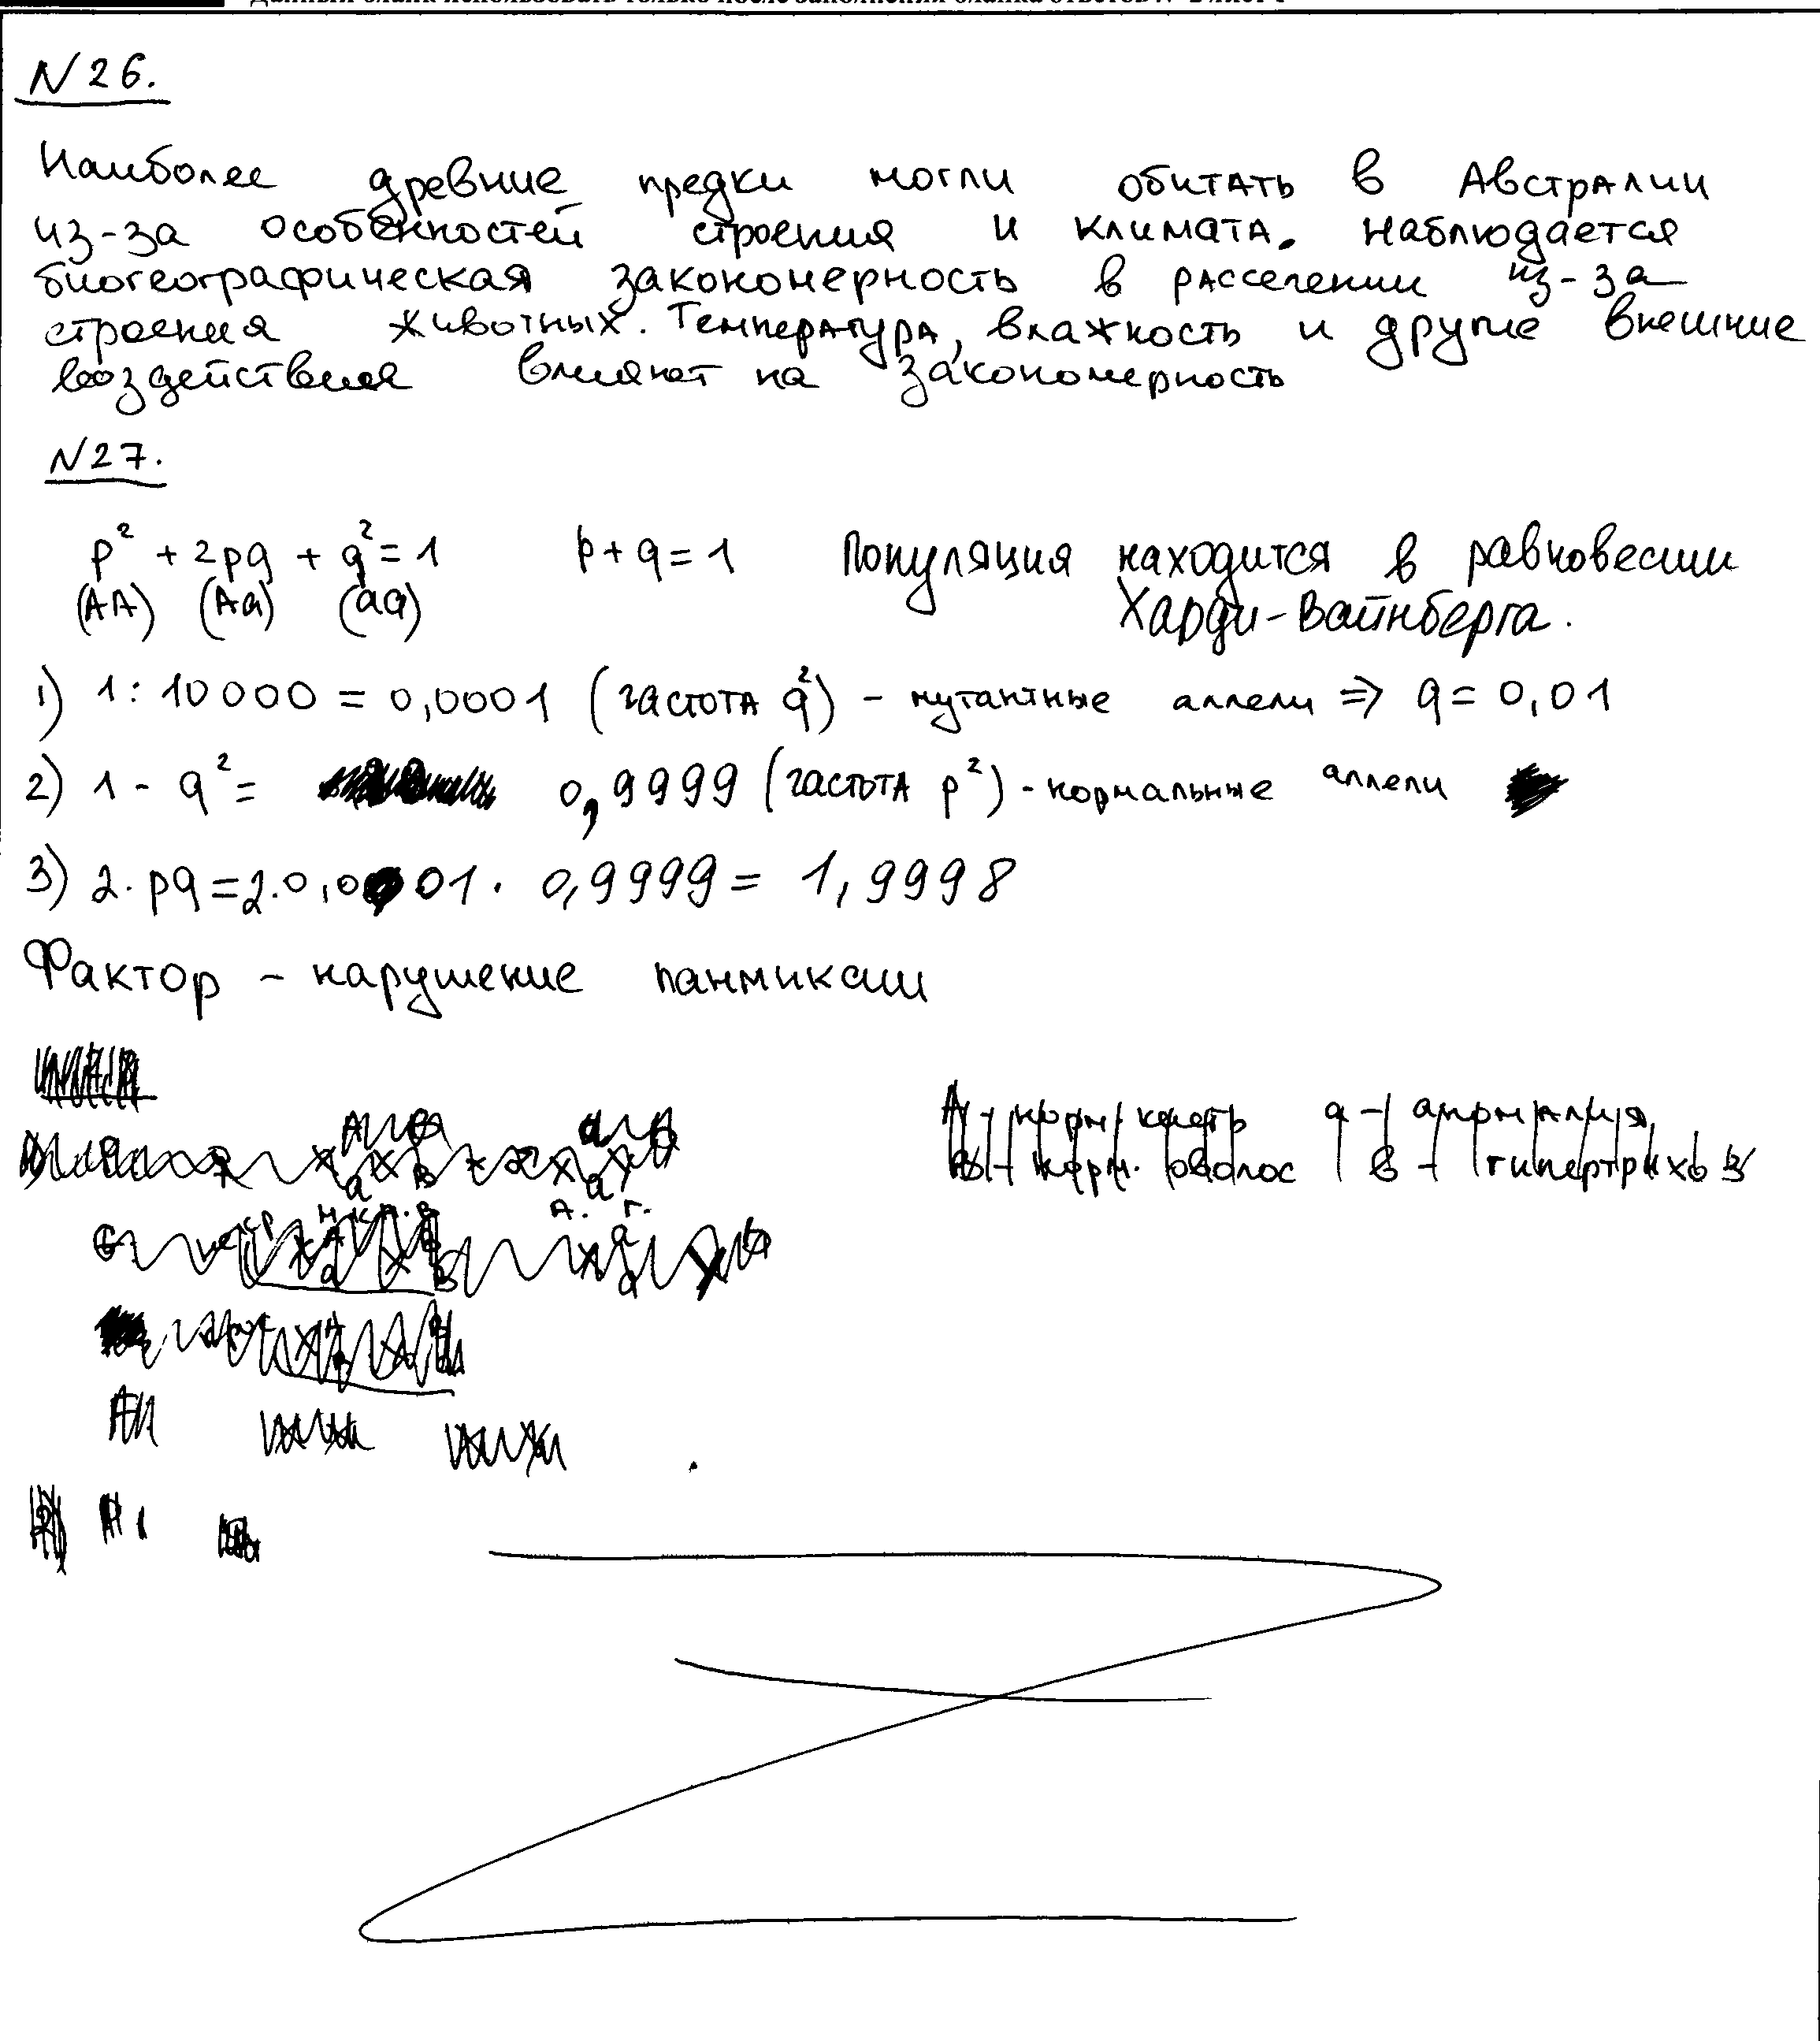 N 26.
Наиболее древние предки могли обитать в Австралии
из-за особенностей строения и климата. Наблюдается
биогеографическая закономерность в расселении из-за
строения животных. Температура, влажность и другие внешние
воздействия влияют на закономерность
N27.
p² + 2pq + q² = 1 p+q=1 Популяция находится в равновесии
(AA) (Aa) (aa) Харди-Вайнберга.
1) 1:10000 = 0,0001 (частота q²) - мутантные аллели ⇒ q = 0,01
2) 1 - q² = 0,9999 (частота p²) - нормальные аллели
3) 2·pq=2·0,001· 0,9999 = 1,9998
Фактор - нарушение панмиксии
A - норм. кисть a - аномалия
B - норм. оволос b - гипертрихоз